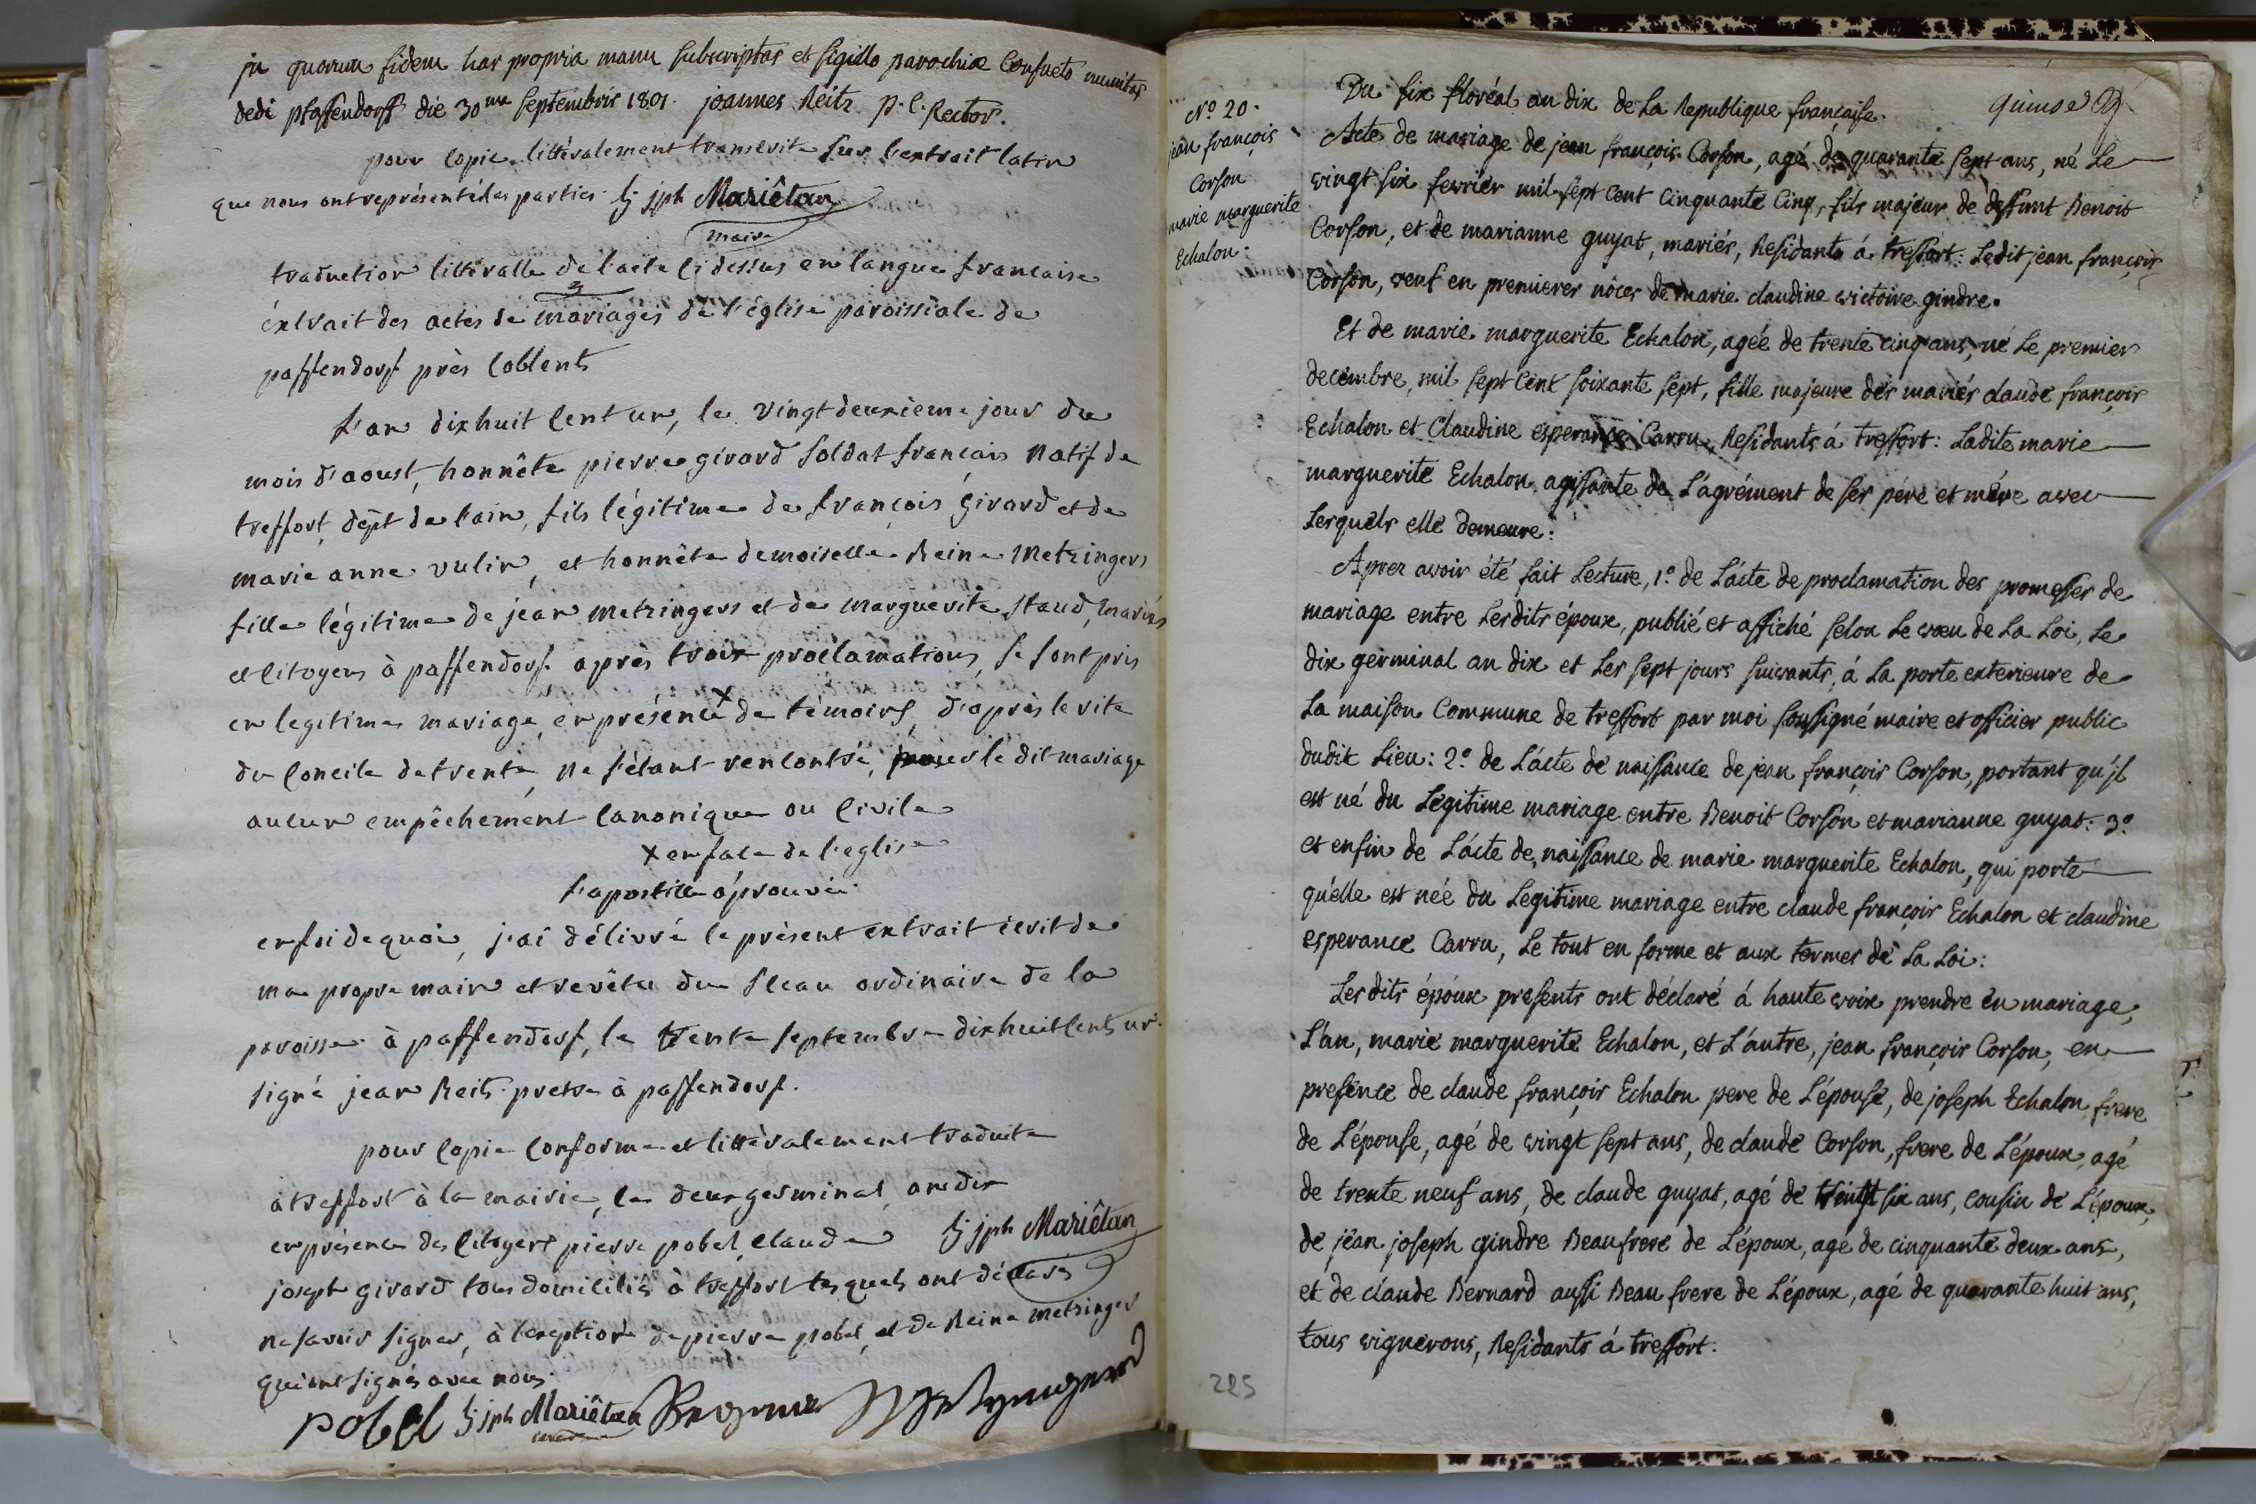 in quorum fidem has propria manu subscriptas et sigillo parochiæ Consueto munitas
dedi pfaffendorff die 30ma septembris 1801. joannes Reitz p. l. Rector.
pour copie littéralement transcrite sur l'extrait latin
que nous ont représenté les parties. Cj jph Mariêtan
maire
traduction littéralle de l'acte ci dessus en langue francaise
éxtrait des actes de mariages de l'église paroissiale de
paffendorf près Coblents
l'an dixhuit cent un, le vingt deuxieme jour du
mois d'aoust, honnête pierre girard soldat francais natif de
treffort, dépt de l'ain, fils légitime de françois Girard et de
marie anne vulin, et honnête demoiselle Reine Metzingers
fille légitime de jean metzingers et de marguerite Staud, mariés
et citoyens à paffendorf. après trois proclamations, se sont pris
en legitime mariage, en présence x de témoins, d'après le rite
du Concile de trente, ne s'étant rencontré, pour le dit mariage
aucun empêchement canonique ou civile
x en face de l'eglise
l'apostille aprouvée.
en foi de quoi, j'ai délivré le présent extrait écrit de
ma propre main et revêtu du sceau ordinaire de la
paroisse à paffendorf, le trente septembre dixhuit cent un.
signé jean Reits pretre à paffendorf.
pour copie conforme et littéralement traduite
à treffort à la mairie, le deux germinal, an dix
en présence des citoyens pierre pobel, claude Cj jph Mariêtan
joseph girard tous domiciliés à treffort lesquels ont déclarés
ne savoir signer, à l'exeption de pierre pobel, et de Reine metzinger
qui ont signés avec nous.
pobel Cj jph Mariêtan
maire
quinse
Du six floréal an dix de la Republique française.
No. 20.
jean françois
Corson
marie marguerite
Echalon.
Acte de mariage de jean françois Corson, agé de quarante sept ans, né le
vingt six fevrier mil sept cent cinquante cinq, fils majeur de deffunt Benoit
Corson, et de marianne guyat, mariés, Residants á treffort: Ledit jean françois
Corson, veuf en premieres nôces de marie claudine victoire gindre.
Et de marie marguerite Echalon, agée de trente cinq ans, né le premier
decembre, mil sept cent soixante sept, fille majeure des mariés claude françois
Echalon et Claudine esperance Carru, Residants á treffort: Ladite marie
marguerite Echalon agissante de L'agrément de ses pére et mére avec
Lesquels elle demeure:
Aprez avoir été fait Lecture, 1º. de L'ácte de proclamation des promesses de
mariage entre Lesdits époux, publié et affiché selon Le vœu de La Loi, Le
dix germinal an dix et Les sept jours suivants, á La porte exterieure de
La maison Commune de treffort par moi soussigné maire et officier public
dudit Lieu: 2º. de L'ácte de naissance de jean françois Corson, portant qu'jl
est né du Légitime mariage entre Benoit Corson et marianne guyat: 3º.
et enfin de L'ácte de naissance de marie marguerite Echalon, qui porte
qu'elle est née du Legitime mariage entre claude françois Echalon et claudine
esperance Carru, Le tout en forme et aux termes de La Loi:
Lesdits époux presents ont déclaré á haute voix prendre en mariage,
L'un, marie marguerite Echalon, et L'autre, jean françois Corson, en
presence de claude françois Echalon pere de L'épouse, de joseph Echalon frere
de L'épouse, agé de vingt sept ans, de claude Corson, frere de L'époux, agé
de trente neuf ans, de claude guyat, agé de six ans, cousin de L'époux,
de jean joseph gindre Beaufrere de L'époux, agé de cinquante deux ans,
et de claude Bernard aussi Beau frere de L'époux, agé de quarante huit ans,
tous vignerons, Residants á treffort.
225